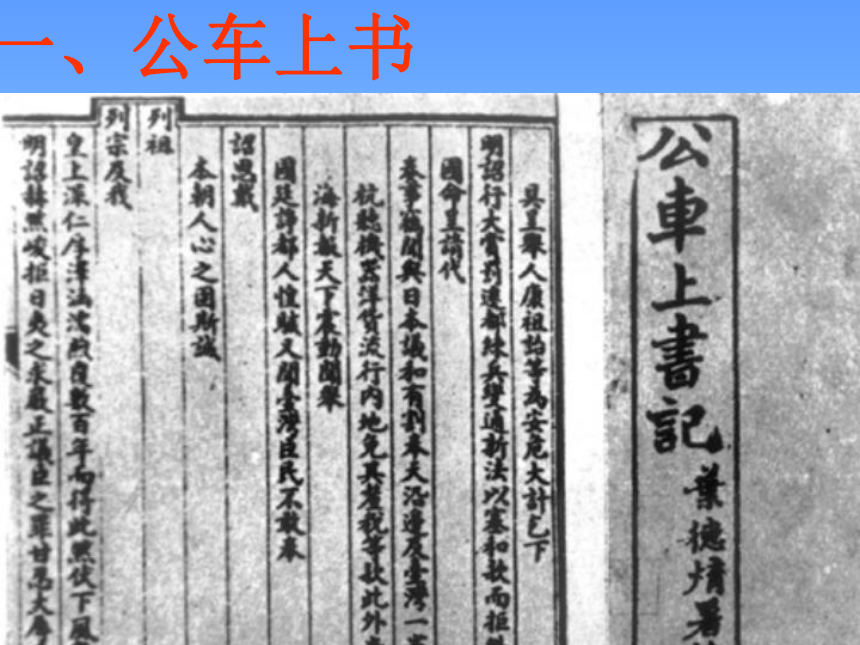 一、公车上书
公車上書記
葉德
具呈舉人康祖詒等為安危大計乞下
明詔行大賞罰遷都練兵變通新法以塞和款而拒
國命呈請代
奏事竊聞與日本議和有割奉天沿邊及臺灣一
杭聽機器洋貨流行內地免其釐稅等款此外
海新報天下震動聞舉
國廷諍都人惶駭又聞臺灣臣民不敢奉
詔思戴
本朝人心之固斯誠
列祖
列宗及我
皇上深仁厚澤涵濡煦覆數百年而得此然伏下風
明詔赫然峻拒日夷之求嚴正議臣之罪甘忍大辱